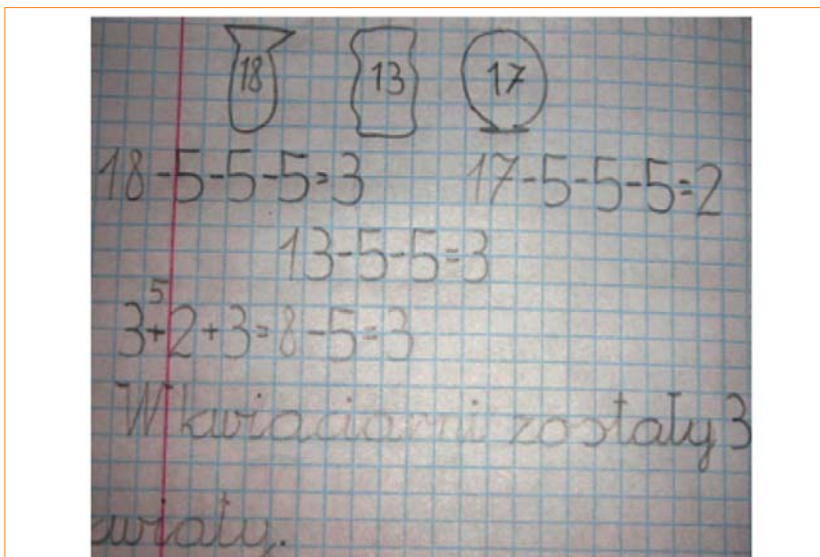 18 13 17
18-5-5-5=3 17-5-5-5=2
13-5-5=3
5
3+2+3=8-5=3
W kwiaciarni zostały 3
kwiaty.